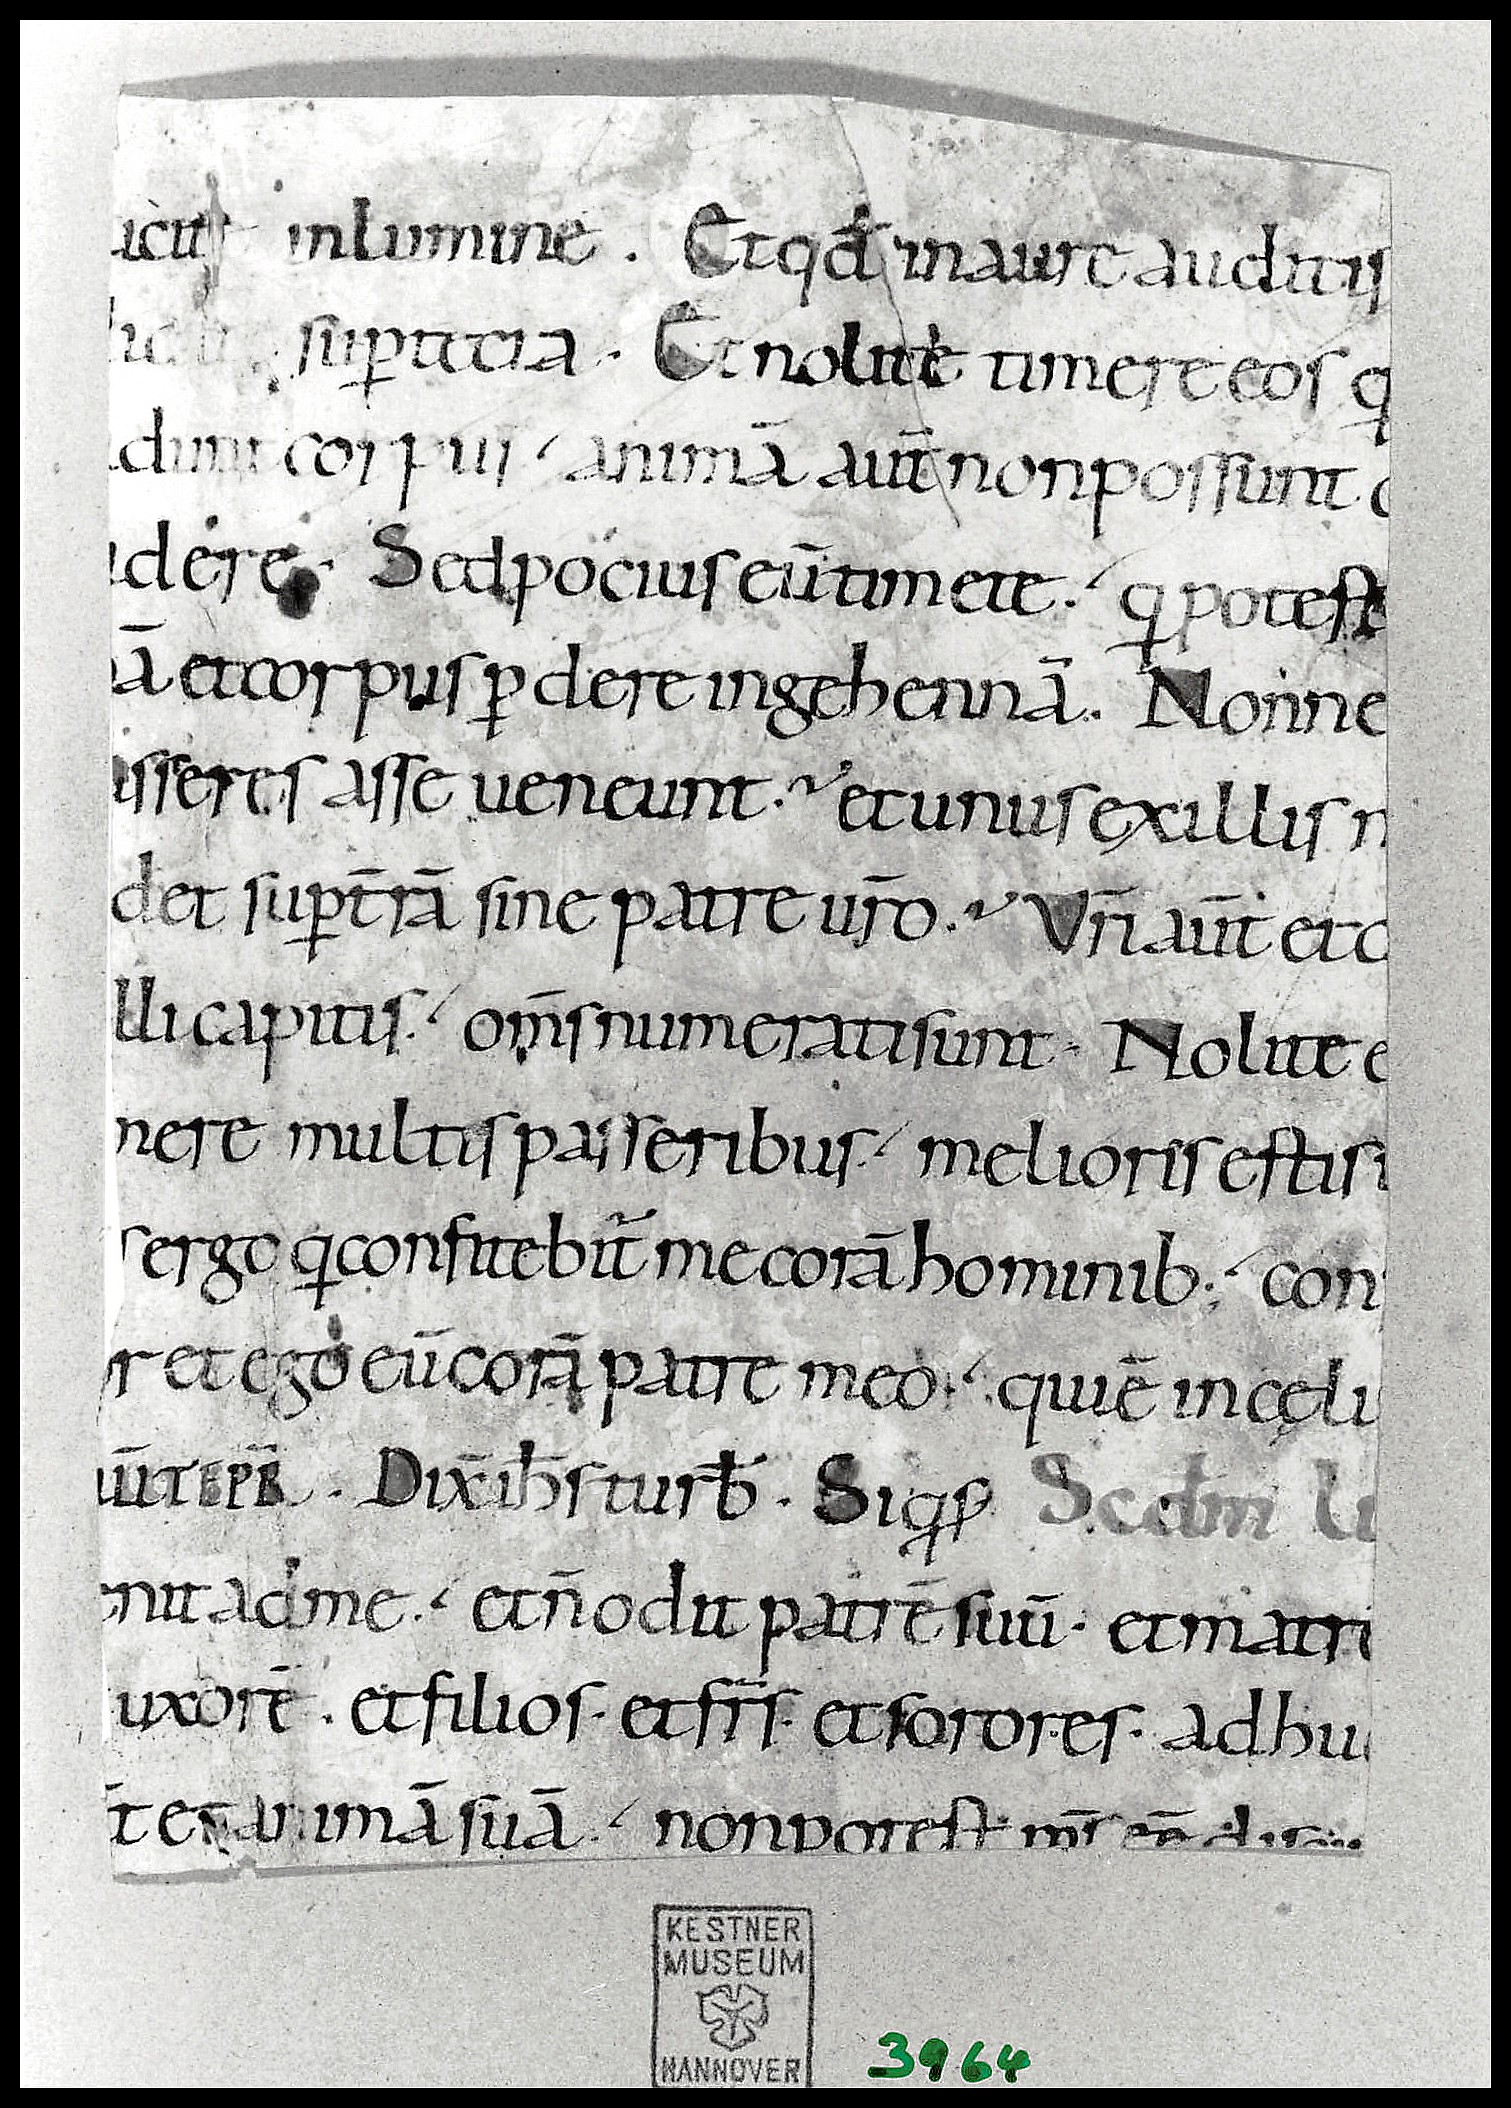 icite in lumine . Et qđ in aure auditis
sup tecta . Et nolite timere eos q
dunt corpus ⸝ animā aut̄ non possunt o
dere . Sed pocius eū timete . ⸝ q potest
ā et corpus pdere in gehennā . Nonne
asseres asse ueneunt . et unus ex illis n
det sup t̄rā sine patre ur̄o . Vr̄i aut̄ et c
lli capitis . ⸝ om̄s numerati sunt . Nolite e
mere multis passeribus . ⸝ melioris estis u
s ergo q confitebit̄ me corā hominib; ⸝ con
r et ego eū corā patre meo . ⸝ qui ē in cęli
Dix̄ ih̄s turb̄ . Siqs Scdm lu
nit ad me . ⸝ et n̄ odit patrē suū . et matrē
uxorē . et filios . et fr̄s . et sorores . adhu
t̄ et animā suā . ⸝ non potest m̄s eē discip
KESTNER
MUSEUM
HANNOVER
3964